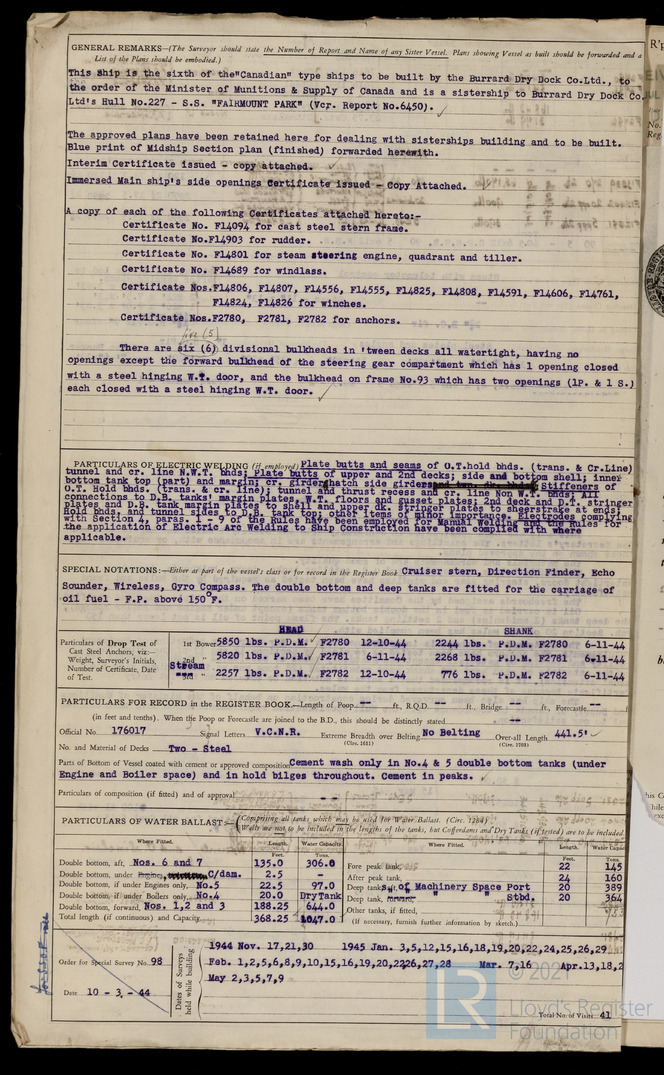 GENERAL REMARKS—(The Surveyor should state the Number of Report and Name of any Sister Vessel. Plans showing Vessel as built should be forwarded and a
List of the Plans should be embodied.)
This Ship is the sixth of the "Canadian" type ships to be built by the Burrard Dry Dock Co.Ltd., to
the order of the Minister of Munitions & Supply of Canada and is a sistership to Burrard Dry Dock Co.
Ltd's Hull No.227 - S.S. "FAIRMOUNT PARK" (Vcr. Report No.6450).
The approved plans have been retained here for dealing with sisterships building and to be built.
Blue print of Midship Section plan (finished) forwarded herewith.
Interim Certificate issued - copy attached.
Immersed Main ship's side openings Certificate issued - Copy Attached.
A copy of each of the following Certificates attached hereto:-
Certificate No. F14094 for cast steel stern frame.
Certificate No.F14903 for rudder.
Certificate No. F14801 for steam steering engine, quadrant and tiller.
Certificate No. F14689 for windlass.
Certificate Nos.F14806, F14807, F14556, F14555, F14825, F14808, F14591, F14606, F14761,
F14824, F14826 for winches.
Certificate Nos.F2780, F2781, F2782 for anchors.
five (5)
There are six (6) divisional bulkheads in 'tween decks all watertight, having no
openings except the forward bulkhead of the steering gear compartment which has 1 opening closed
with a steel hinging W.T. door, and the bulkhead on frame No.93 which has two openings (1P. & 1 S.)
each closed with a steel hinging W.T. door.
PARTICULARS OF ELECTRIC WELDING (if employed) Plate butts and seams of O.T.hold bhds. (trans. & Cr.Line)
tunnel and cr. line N.W.T. bhds; Plate butts of upper and 2nd decks; side and bottom shell; inner
bottom tank top (part) and margin; cr. girder hatch side girders Stiffeners of
O.T. Hold bhds. (trans. & cr. line); tunnel and thrust recess and cr. line Non W.T. bhds; All
connections to D.B. tanks' margin plates, W.T. floors and gusset plates; 2nd deck and D.T. stringer
plates and D.B. tank margin plates to shell and upper dk. stringer plates to sheerstrake at ends;
Hold bhds. and tunnel sides to D.B. tank top; other items of minor importance. Electrodes complying
with Section 4, paras. 1 - 9 of the Rules have been employed for Manual Welding and the Rules for
the application of Electric Arc Welding to Ship Construction have been complied with where
applicable.
SPECIAL NOTATIONS:—Either as part of the vessel's class or for record in the Register Book Cruiser stern, Direction Finder, Echo
Sounder, Wireless, Gyro Compass. The double bottom and deep tanks are fitted for the carriage of
oil fuel - F.P. above 150°F.
HEAD SHANK
Particulars of Drop Test of
Cast Steel Anchors, viz:—
Weight, Surveyor's Initials,
Number of Certificate, Date
of Test.
1st Bower 5850 lbs. P.D.M. F2780 12-10-44 2244 lbs. P.D.M. F2780 6-11-44
2nd " 5820 lbs. P.D.M. F2781 6-11-44 2268 lbs. P.D.M. F2781 6-11-44
Stream 2257 lbs. P.D.M. F2782 12-10-44 776 lbs. P.D.M. F2782 6-11-44
PARTICULARS FOR RECORD in the REGISTER BOOK.—Length of Poop -- ft., R.Q.D. -- ft., Bridge -- ft., Forecastle --
(in feet and tenths). When the Poop or Forecastle are joined to the B.D., this should be distinctly stated --
Official No. 176017 Signal Letters V.C.N.R. Extreme Breadth over Belting No Belting Over-all Length 441.5'
(Circ. 1611) (Circ. 1703)
No. and Material of Decks Two - Steel
Parts of Bottom of Vessel coated with cement or approved composition Cement wash only in No.4 & 5 double bottom tanks (under
Engine and Boiler space) and in hold bilges throughout. Cement in peaks.
Particulars of composition (if fitted) and of approval - -
PARTICULARS OF WATER BALLAST:—(Comprising all tanks which may be used for Water Ballast. (Circ. 1284)
Wells are not to be included in the lengths of the tanks, but Cofferdams and Dry Tanks (if tested) are to be included.
Where Fitted. Length. Water Capacity. Where Fitted. Length. Water Capa
Feet. Tons. Feet. Tons.
Double bottom, aft, Nos. 6 and 7 135.0 306.0 Fore peak tank, 22 145
Double bottom, under C/dam. 2.5 - After peak tank, 24 160
Double bottom, if under Engines only, No.5 22.5 97.0 Deep tank, of Machinery Space Port 20 389
Double bottom, if under Boilers only No.4 20.0 DryTank Deep tank, forward " " Stbd. 20 364
Double bottom, forward, Nos. 1,2 and 3 188.25 644.0 Other tanks, if fitted,
Total length (if continuous) and Capacity 368.25 1047.0 (If necessary, furnish further information by sketch.)
Order for Special Survey No. 98
Date 10 - 3 - 44
Dates of Surveys
held while building
1944 Nov. 17,21,30 1945 Jan. 3,5,12,15,16,18,19,20,22,24,25,26,29
Feb. 1,2,5,6,8,9,10,15,16,19,20,22,26,27,28 Mar. 7,16 Apr.13,18,2
May 2,3,5,7,9
Total No. of Visits 41
© 2021
LR
Lloyd's Register
Foundation